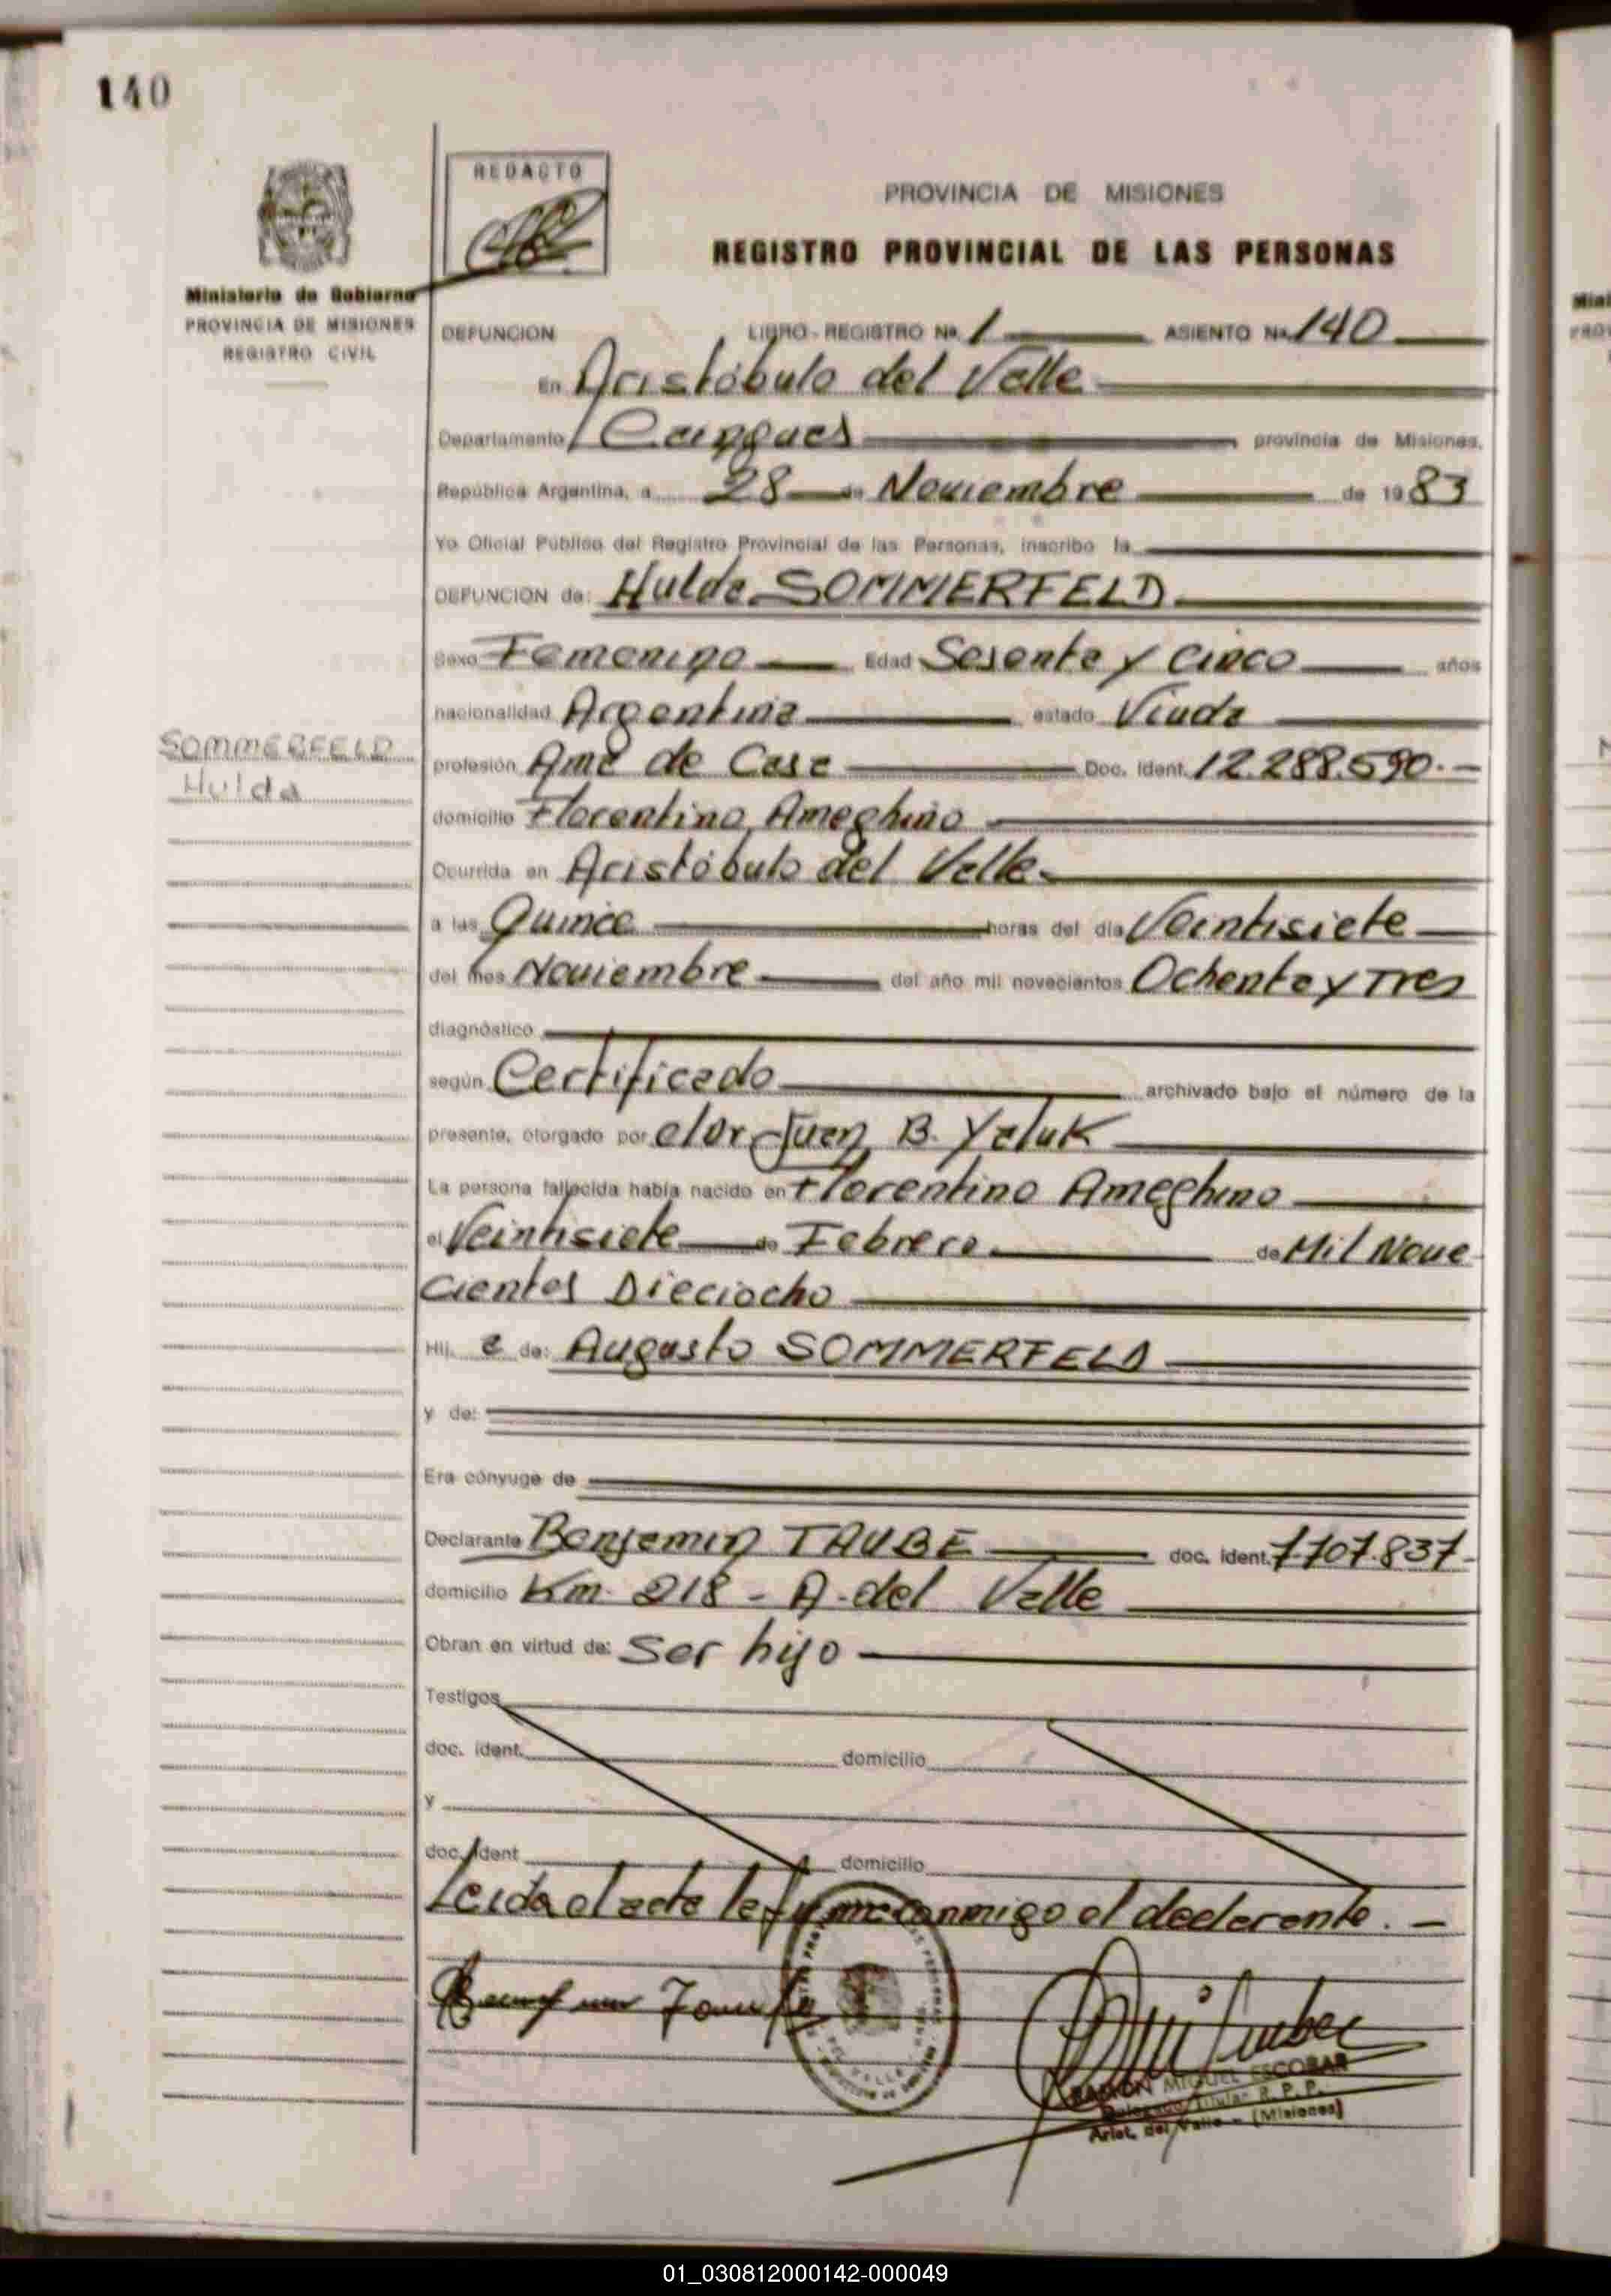 140
REDACTO
PROVINCIA DE MISIONES
REGISTRO PROVINCIAL DE LAS PERSONAS
Ministerio de Gobierno
PROVINCIA DE MISIONES
REGISTRO CIVIL
DEFUNCION LIBRO - REGISTRO No. 1 ASIENTO No. 140
En Aristóbulo del Valle
Departamento Cainguas provincia de Misiones.
República Argentina, a 28 de Noviembre de 1983
Yo Oficial Público del Registro Provincial de las Personas, inscribo la
DEFUNCION de: Hulda SOMMERFELD
Sexo Femenino Edad Sesenta y Cinco años
nacionalidad Argentina estado Viuda
SOMMERFELD
Hulda
profesión Ama de Casa Doc. Ident. 12.288.590.-
domicilio Florentino Ameghino
Ocurrida en Aristóbulo del Valle
a las Quince horas del día Veintisiete
del mes Noviembre del año mil novecientos Ochenta y Tres
diagnóstico
según Certificado archivado bajo el número de la
presente, otorgado por el Dr. Juan B. Yaluk
La persona fallecida había nacido en Florentino Ameghino
el Veintisiete de Febrero de Mil Nove
cientos Dieciocho
Hij a de: Augusto SOMMERFELD
y de:
Era cónyuge de
Declarante Benjamin TAUBE doc. ident. 7.707.837-
domicilio Km. 218 - A. del Valle
Obran en virtud de: Ser hijo
Testigos
doc. ident. domicilio
y
doc. ident domicilio
Leida el acta la firma conmigo el declarante. -
RAMÓN MIGUEL ESCOBAR
Delegado Titular R. P. P.
Arist. del Valle - (Misiones)
01_030812000142-000049